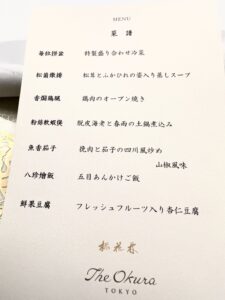 MENU
菜譜
特製盛り合わせ冷菜
松茸とふかひれの姿入り蒸しスープ
鶏肉のオーブン焼き
脱皮海老と春雨の土鍋煮込み
魚香茄子 挽肉と茄子の四川風炒め
山椒風味
八珍燴飯 五目あんかけご飯
鮮果豆腐 フレッシュフルーツ入り杏仁豆腐
桃花林
The Okura
TOKYO